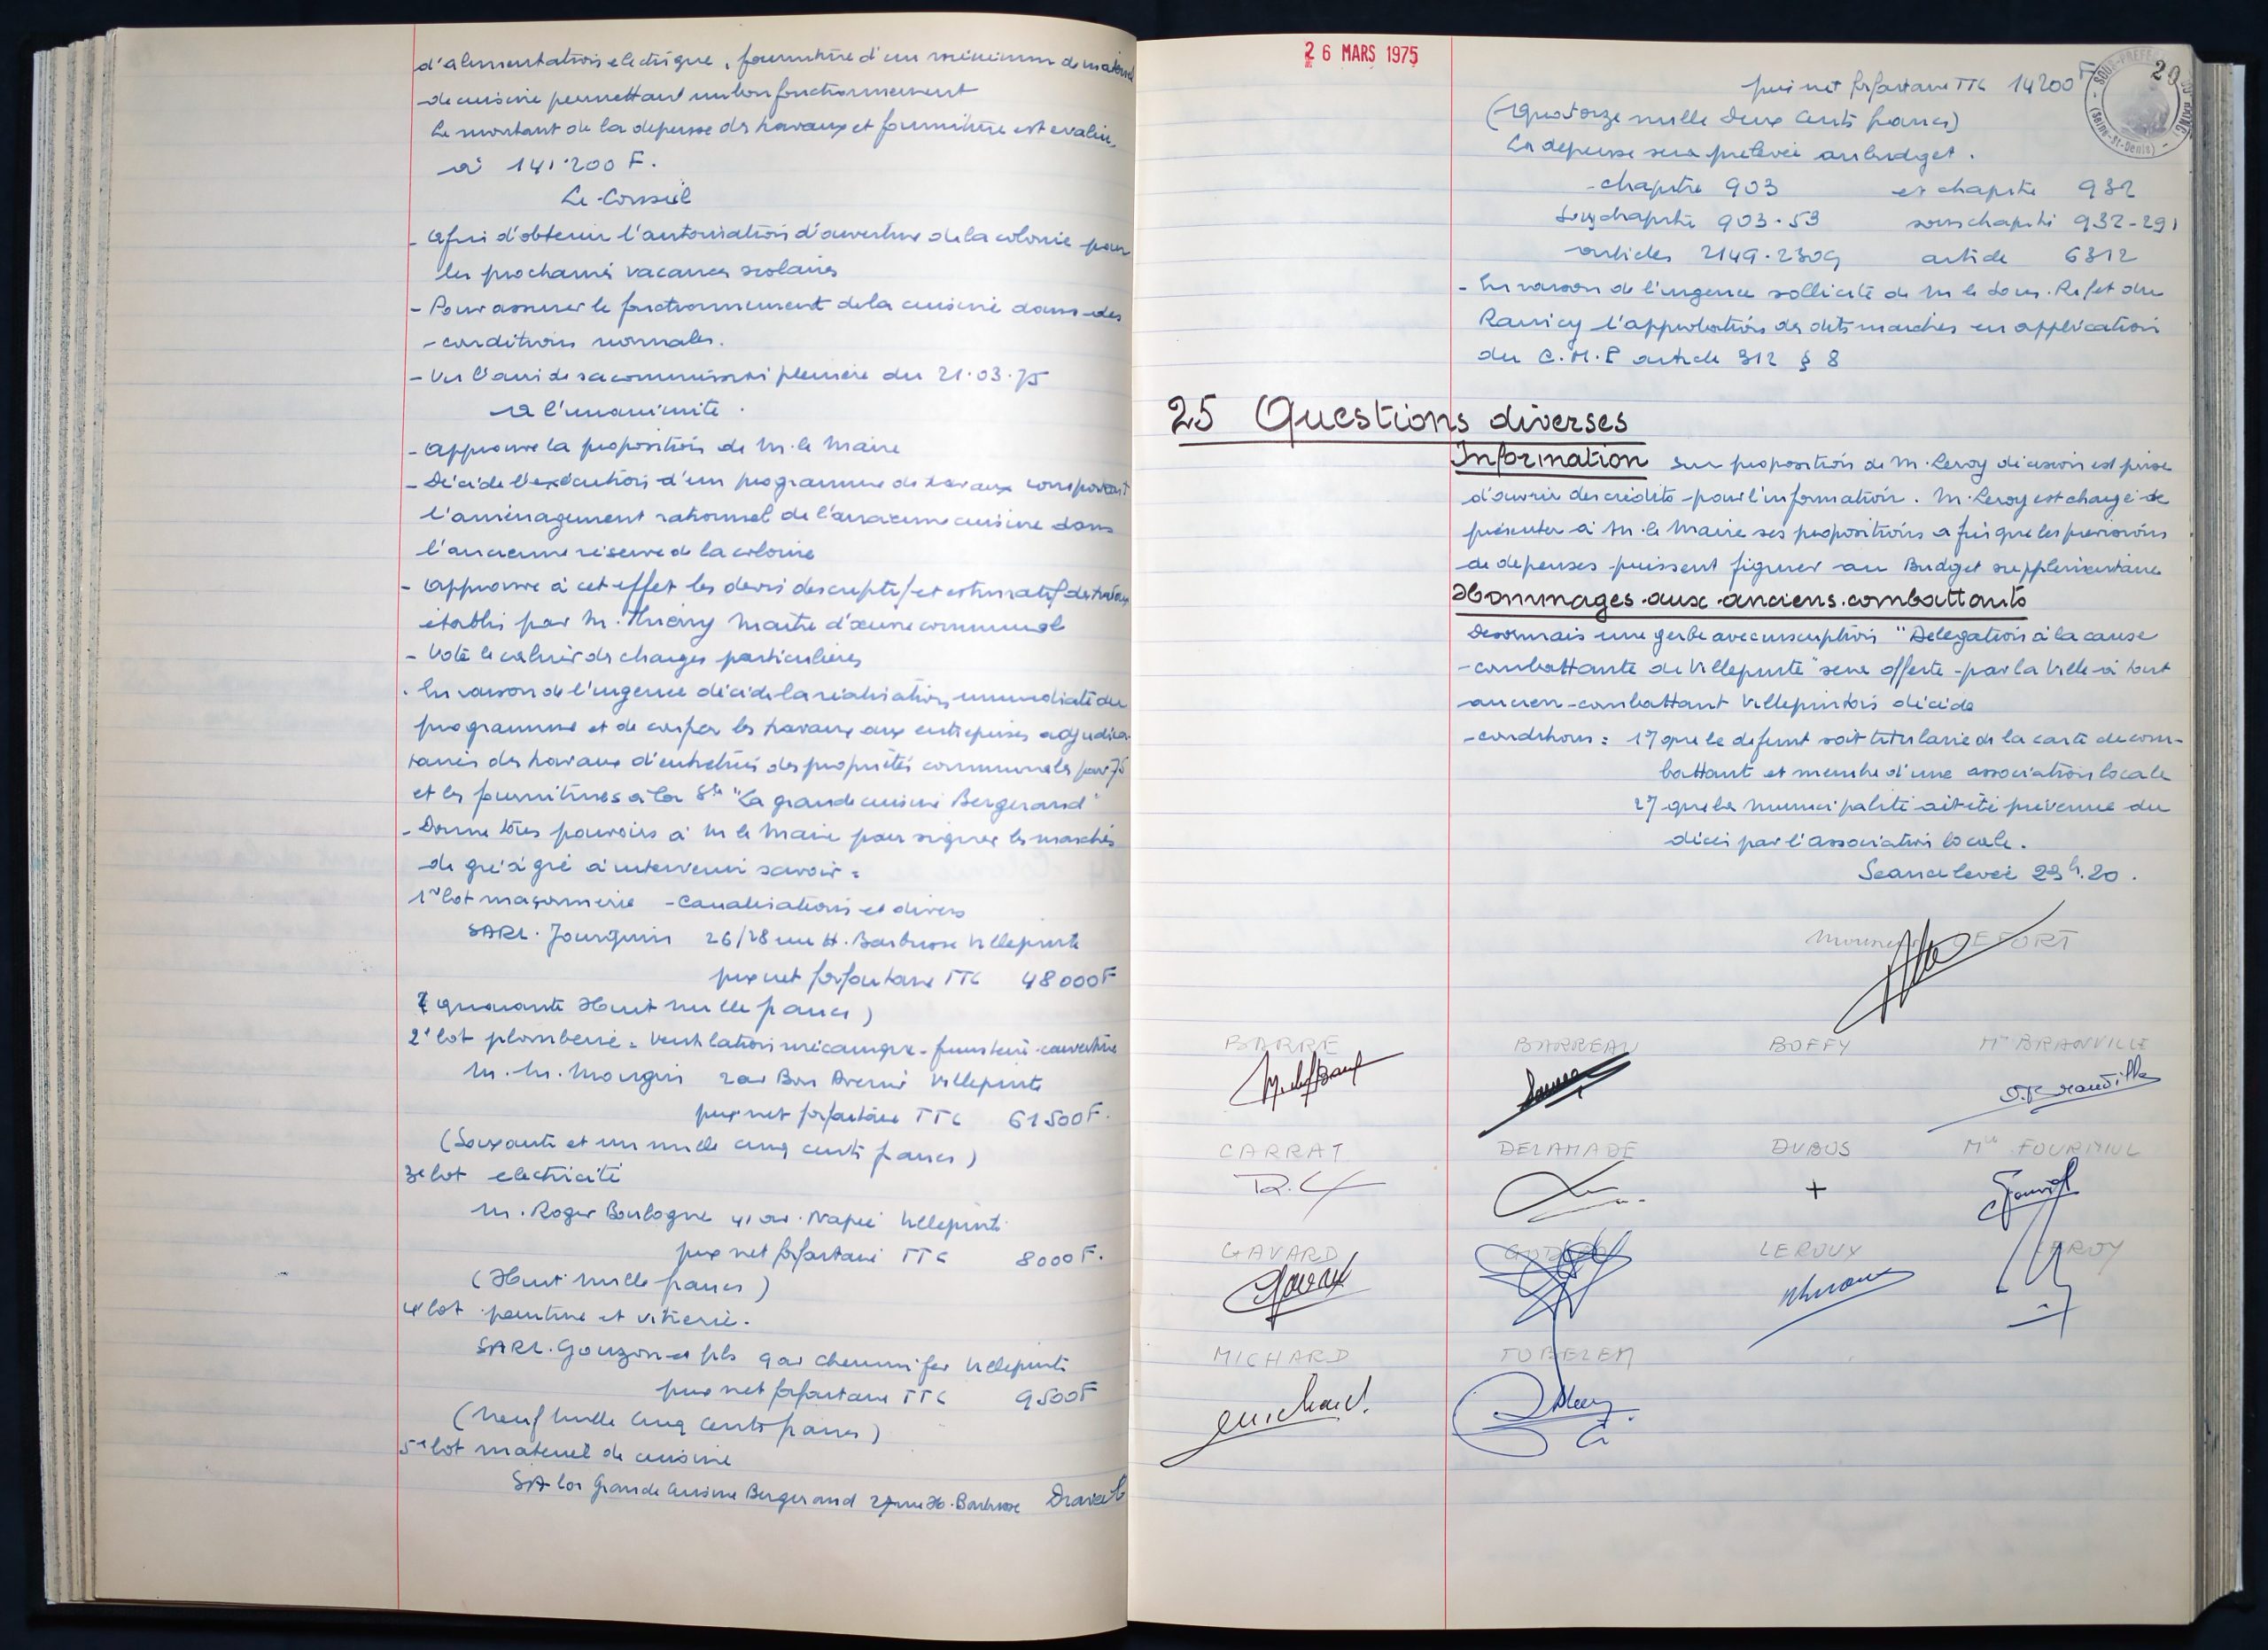 d'alimentation electrique, fourniture d'un minimum de materiel
de cuisine permettant un bon fonctionnement
Le montant de la depense des travaux et fourniture est evaluée
à 141.200 F.
Le Conseil
- afin d'obtenir l'autorisation d'ouverture de la colonie pour
les prochaines vacances scolaires
- Pour assurer le fonctionnement de la cuisine dans des
conditions normales.
- Vu l'avis de sa commission plenière du 21.03.75
à l'unanimité.
- approuve la proposition de M. le Maire
- Décide l'exécution d'un programme de travaux comportant
l'aménagement rationnel de l'ancienne cuisine dans
l'ancienne réserve de la colonie
- approuve à cet effet les devis descriptif et estimatif des travaux
établis par M. Thierry Maître d'œuvre communal
- Vote le cahier des charges particulières
. En raison de l'urgence décide la réalisation immediate du
programme et de confier les travaux aux entreprises adjudica-
taires des travaux d'entretien des propriétés communales pour 75
et les fournitures à la Sté "La grande cuisine Bergerand"
- Donne tous pouvoirs à M le Maire pour signer les marchés
de gré à gré à intervenir savoir :
1er lot maçonnerie - Canalisations et divers
SARL. Jourquin 26/28 rue H. Barbusse Villepinte
prix net forfaitaire TTC 48000F
(quarante Huit mille francs)
2e lot plomberie = Ventilation mécanique - fumisterie - couverture
M. M. Mougin av Bon Avenir Villepinte
prix net forfaitaire TTC 61500F.
(Soixante et un mille cinq cents francs)
3e lot electricité
M. Roger Boulogne 41 av. Villepinte
prix net forfaitaire TTC 8000F.
(Huit mille francs)
4e lot peinture et vitrerie.
SARL. Gouzon et fils 9 av chemin fer Villepinte
prix net forfaitaire TTC 9500F
(Neuf mille cinq cents francs)
5e lot materiel de cuisine
SA la Grande Cuisine Bergerand 27 rue H. Barbusse Draveil
26 MARS 1975
20
SOUS-PREFE
(Seine-St-Denis)
prix net forfaitaire TTC 14200F
(Quatorze mille Deux Cents francs)
La depense sera prelevée au budget.
- chapitre 903 et chapitre 932
Sous chapitre 903.53 sous chapitre 932-291
articles 2149.2309 article 6312
- En raison de l'urgence sollicite de M le Sous. Prefet du
Raincy l'approbation des dits marchés en application
du C.M.P article 312 § 8
25 Questions diverses
Information Sur proposition de M. Leroy décision est prise
d'ouvrir des crédits pour l'information. M. Leroy est chargé de
présenter à M. le Maire ses propositions afin que les prévisions
de depenses puissent figurer au Budget supplémentaire
Hommages aux anciens combattants
Desormais une gerbe avec inscription "Delegation à la cause
combattante de Villepinte" sera offerte par la Ville à tout
ancien combattant Villepintois décédé
- conditions : 1°/ que le defunt soit titulaire de la carte de com-
battant et membre d'une association locale
2°/ que la municipalité ait été prévenue du
décès par l'association locale.
Seance levée 23h.20.
Monsieur LEFORT
BARRE BARREAU BOFFY Me BRANVILLE
CARRAT DELAMADE DUBUS Mlle
R.C +
GAVARD LEROUX LEROY
MICHARD